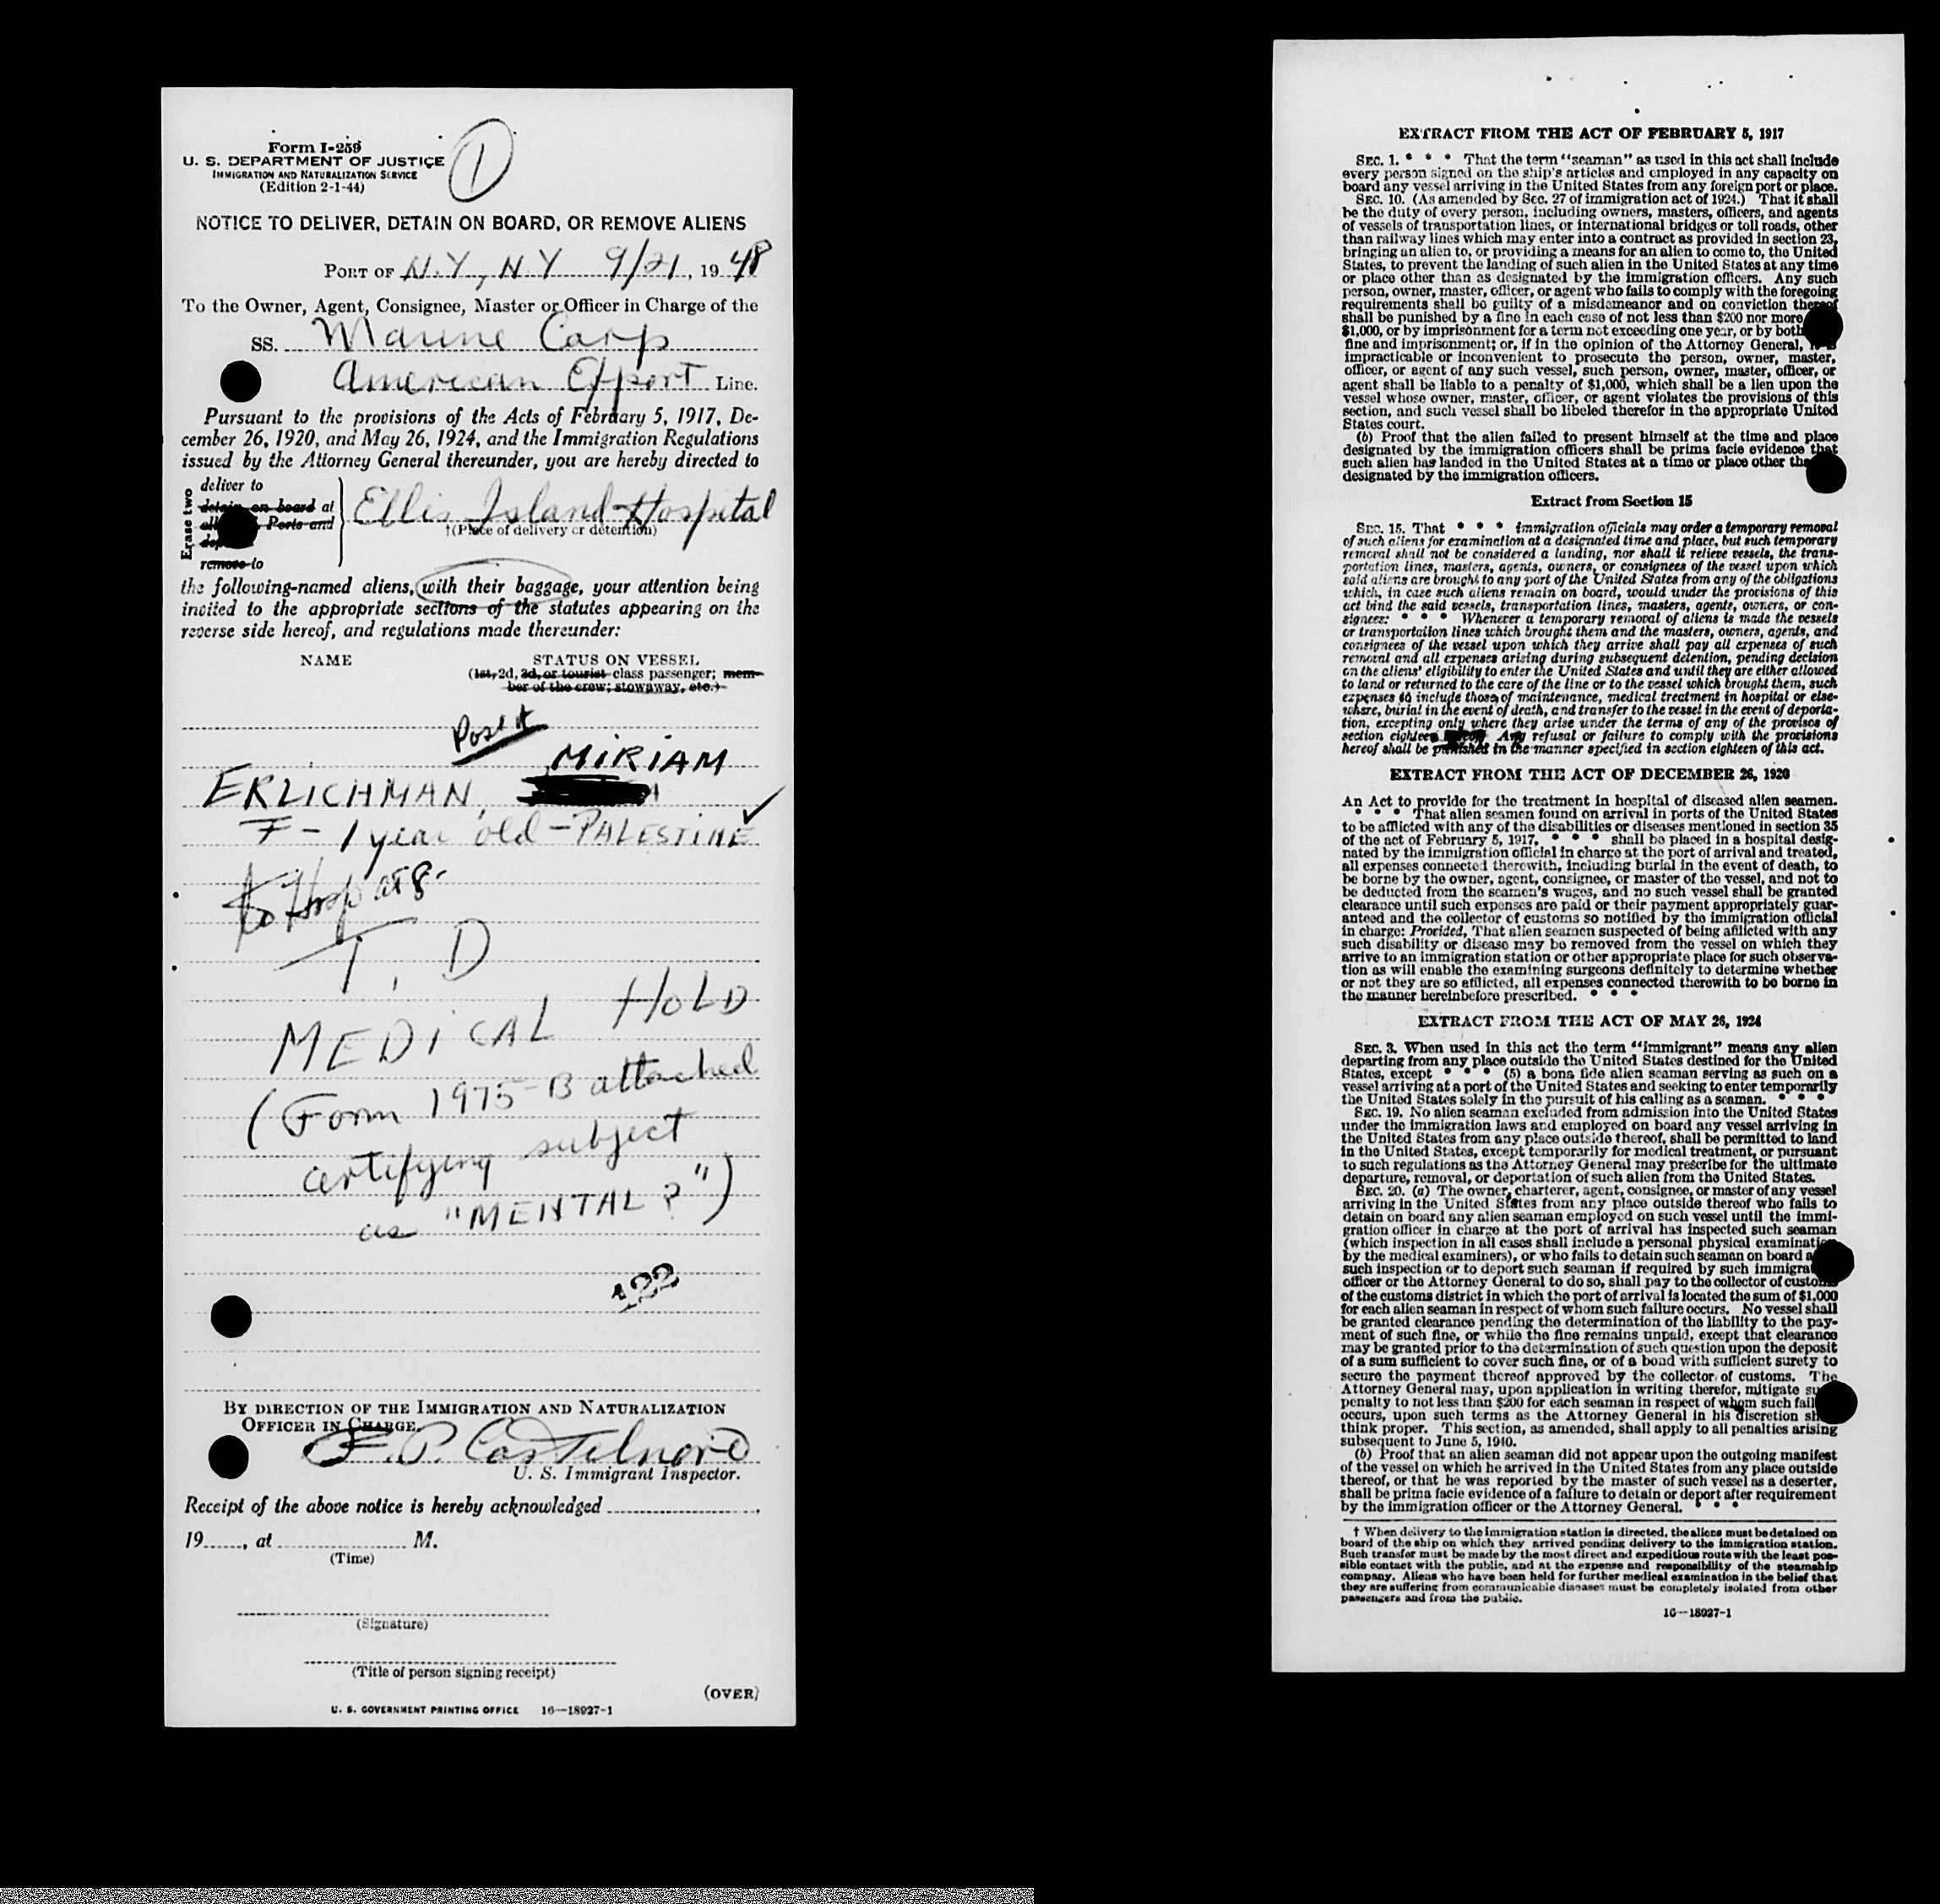 Form I-259
U. S. DEPARTMENT OF JUSTICE
IMMIGRATION AND NATURALIZATION SERVICE
(Edition 2-1-44)
1
NOTICE TO DELIVER, DETAIN ON BOARD, OR REMOVE ALIENS
PORT OF N.Y., N.Y 9/21, 1948
To the Owner, Agent, Consignee, Master or Officer in Charge of the
SS. Marine Carp
American Export Line.
Pursuant to the provisions of the Acts of February 5, 1917, De-
cember 26, 1920, and May 26, 1924, and the Immigration Regulations
issued by the Attorney General thereunder, you are hereby directed to
Erase two
deliver to
detain on board at
Ports and
remove to
Ellis Island Hospital
†(Place of delivery or detention)
the following-named aliens, with their baggage, your attention being
invited to the appropriate sections of the statutes appearing on the
reverse side hereof, and regulations made thereunder:
NAME STATUS ON VESSEL
(1st, 2d, 3d, or tourist class passenger; mem-
ber of the crew; stowaway, etc.)
MIRIAM
ERLICHMAN,
F - 1 year old - PALESTINE
to Hosp
T. D
MEDICAL HOLD
(Form 1975-B attached
certifying subject
as "MENTAL?")
122
BY DIRECTION OF THE IMMIGRATION AND NATURALIZATION
OFFICER IN CHARGE.
U. S. Immigrant Inspector.
Receipt of the above notice is hereby acknowledged
19, at M.
(Time)
(Signature)
(Title of person signing receipt)
(OVER)
U. S. GOVERNMENT PRINTING OFFICE 16—18927-1
EXTRACT FROM THE ACT OF FEBRUARY 5, 1917
SEC. 1. * * * That the term "seaman" as used in this act shall include
every person signed on the ship's articles and employed in any capacity on
board any vessel arriving in the United States from any foreign port or place.
SEC. 10. (As amended by Sec. 27 of immigration act of 1924.) That it shall
be the duty of every person, including owners, masters, officers, and agents
of vessels of transportation lines, or international bridges or toll roads, other
than railway lines which may enter into a contract as provided in section 23,
bringing an alien to, or providing a means for an alien to come to, the United
States, to prevent the landing of such alien in the United States at any time
or place other than as designated by the immigration officers. Any such
person, owner, master, officer, or agent who fails to comply with the foregoing
requirements shall be guilty of a misdemeanor and on conviction thereof
shall be punished by a fine in each case of not less than $200 nor more
$1,000, or by imprisonment for a term not exceeding one year, or by both
fine and imprisonment; or, if in the opinion of the Attorney General, it is
impracticable or inconvenient to prosecute the person, owner, master,
officer, or agent of any such vessel, such person, owner, master, officer, or
agent shall be liable to a penalty of $1,000, which shall be a lien upon the
vessel whose owner, master, officer, or agent violates the provisions of this
section, and such vessel shall be libeled therefor in the appropriate United
States court.
(b) Proof that the alien failed to present himself at the time and place
designated by the immigration officers shall be prima facie evidence that
such alien has landed in the United States at a time or place other
designated by the immigration officers.
Extract from Section 15
SEC. 15. That * * * immigration officials may order a temporary removal
of such aliens for examination at a designated time and place, but such temporary
removal shall not be considered a landing, nor shall it relieve vessels, the trans-
portation lines, masters, agents, owners, or consignees of the vessel upon which
said aliens are brought to any port of the United States from any of the obligations
which, in case such aliens remain on board, would under the provisions of this
act bind the said vessels, transportation lines, masters, agents, owners, or con-
signees: * * * Whenever a temporary removal of aliens is made the vessels
or transportation lines which brought them and the masters, owners, agents, and
consignees of the vessel upon which they arrive shall pay all expenses of such
removal and all expenses arising during subsequent detention, pending decision
on the aliens' eligibility to enter the United States and until they are either allowed
to land or returned to the care of the line or to the vessel which brought them, such
expenses to include those of maintenance, medical treatment in hospital or else-
where, burial in the event of death, and transfer to the vessel in the event of deporta-
tion, excepting only where they arise under the terms of any of the provisos of
section eighteen Any refusal or failure to comply with the provisions
hereof shall be punished in the manner specified in section eighteen of this act.
EXTRACT FROM THE ACT OF DECEMBER 26, 1920
An Act to provide for the treatment in hospital of diseased alien seamen.
* * * That alien seamen found on arrival in ports of the United States
to be afflicted with any of the disabilities or diseases mentioned in section 35
of the act of February 5, 1917, * * * shall be placed in a hospital desig-
nated by the immigration official in charge at the port of arrival and treated,
all expenses connected therewith, including burial in the event of death, to
be borne by the owner, agent, consignee, or master of the vessel, and not to
be deducted from the seamen's wages, and no such vessel shall be granted
clearance until such expenses are paid or their payment appropriately guar-
anteed and the collector of customs so notified by the immigration official
in charge: Provided, That alien seamen suspected of being afflicted with any
such disability or disease may be removed from the vessel on which they
arrive to an immigration station or other appropriate place for such observa-
tion as will enable the examining surgeons definitely to determine whether
or not they are so afflicted, all expenses connected therewith to be borne in
the manner hereinbefore prescribed. * * *
EXTRACT FROM THE ACT OF MAY 26, 1924
SEC. 3. When used in this act the term "immigrant" means any alien
departing from any place outside the United States destined for the United
States, except * * * (5) a bona fide alien seaman serving as such on a
vessel arriving at a port of the United States and seeking to enter temporarily
the United States solely in the pursuit of his calling as a seaman. * * *
SEC. 19. No alien seaman excluded from admission into the United States
under the immigration laws and employed on board any vessel arriving in
the United States from any place outside thereof, shall be permitted to land
in the United States, except temporarily for medical treatment, or pursuant
to such regulations as the Attorney General may prescribe for the ultimate
departure, removal, or deportation of such alien from the United States.
SEC. 20. (a) The owner, charterer, agent, consignee, or master of any vessel
arriving in the United States from any place outside thereof who fails to
detain on board any alien seaman employed on such vessel until the immi-
gration officer in charge at the port of arrival has inspected such seaman
(which inspection in all cases shall include a personal physical examination
by the medical examiners), or who fails to detain such seaman on board
such inspection or to deport such seaman if required by such
officer or the Attorney General to do so, shall pay to the collector of customs
of the customs district in which the port of arrival is located the sum of $1,000
for each alien seaman in respect of whom such failure occurs. No vessel shall
be granted clearance pending the determination of the liability to the pay-
ment of such fine, or while the fine remains unpaid, except that clearance
may be granted prior to the determination of such question upon the deposit
of a sum sufficient to cover such fine, or of a bond with sufficient surety to
secure the payment thereof approved by the collector of customs. The
Attorney General may, upon application in writing therefor, mitigate
penalty to not less than $200 for each seaman in respect of whom such
occurs, upon such terms as the Attorney General in his discretion
think proper. This section, as amended, shall apply to all penalties arising
subsequent to June 5, 1940.
(b) Proof that an alien seaman did not appear upon the outgoing manifest
of the vessel on which he arrived in the United States from any place outside
thereof, or that he was reported by the master of such vessel as a deserter,
shall be prima facie evidence of a failure to detain or deport after requirement
by the immigration officer or the Attorney General. * * *
† When delivery to the immigration station is directed, the aliens must be detained on
board of the ship on which they arrived pending delivery to the immigration station.
Such transfer must be made by the most direct and expeditious route with the least pos-
sible contact with the public, and at the expense and responsibility of the steamship
company. Aliens who have been held for further medical examination in the belief that
they are suffering from communicable diseases must be completely isolated from other
passengers and from the public.
16—18927-1